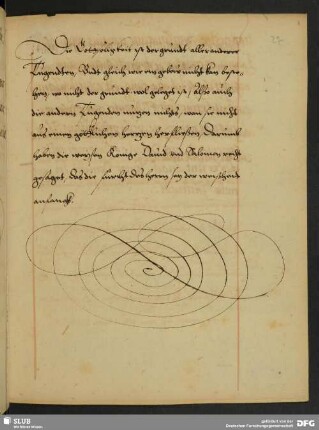 27
Die Gotzfurchtext ist der grundt aller anderen
Tugendten, Vndt gleich wie ein gebew nicht kan beste-
hen, wo nicht der grundt wol geleget ist, Also auch
die andern Tugenden nutzen nichts, wan sie nicht
aus einem gotfürchten hertzen herfliessen. Darumb
haben die weysen Konige Dauid vnd Salomon recht
gesaget, das die furcht des herrn sey der weisheit
anfangk.
SLUB
Wir führen Wissen.
gefördert von der
Deutschen Forschungsgemeinschaft
DFG